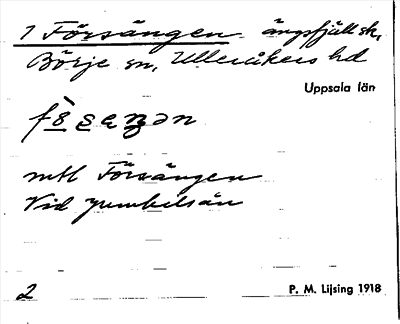 1 Försängen ängsfjäll sk,
Börje sn, Ulleråkers hd
Uppsala län
mtl Försängen
Vid Jumkilsån
2
P. M. Lijsing 1918